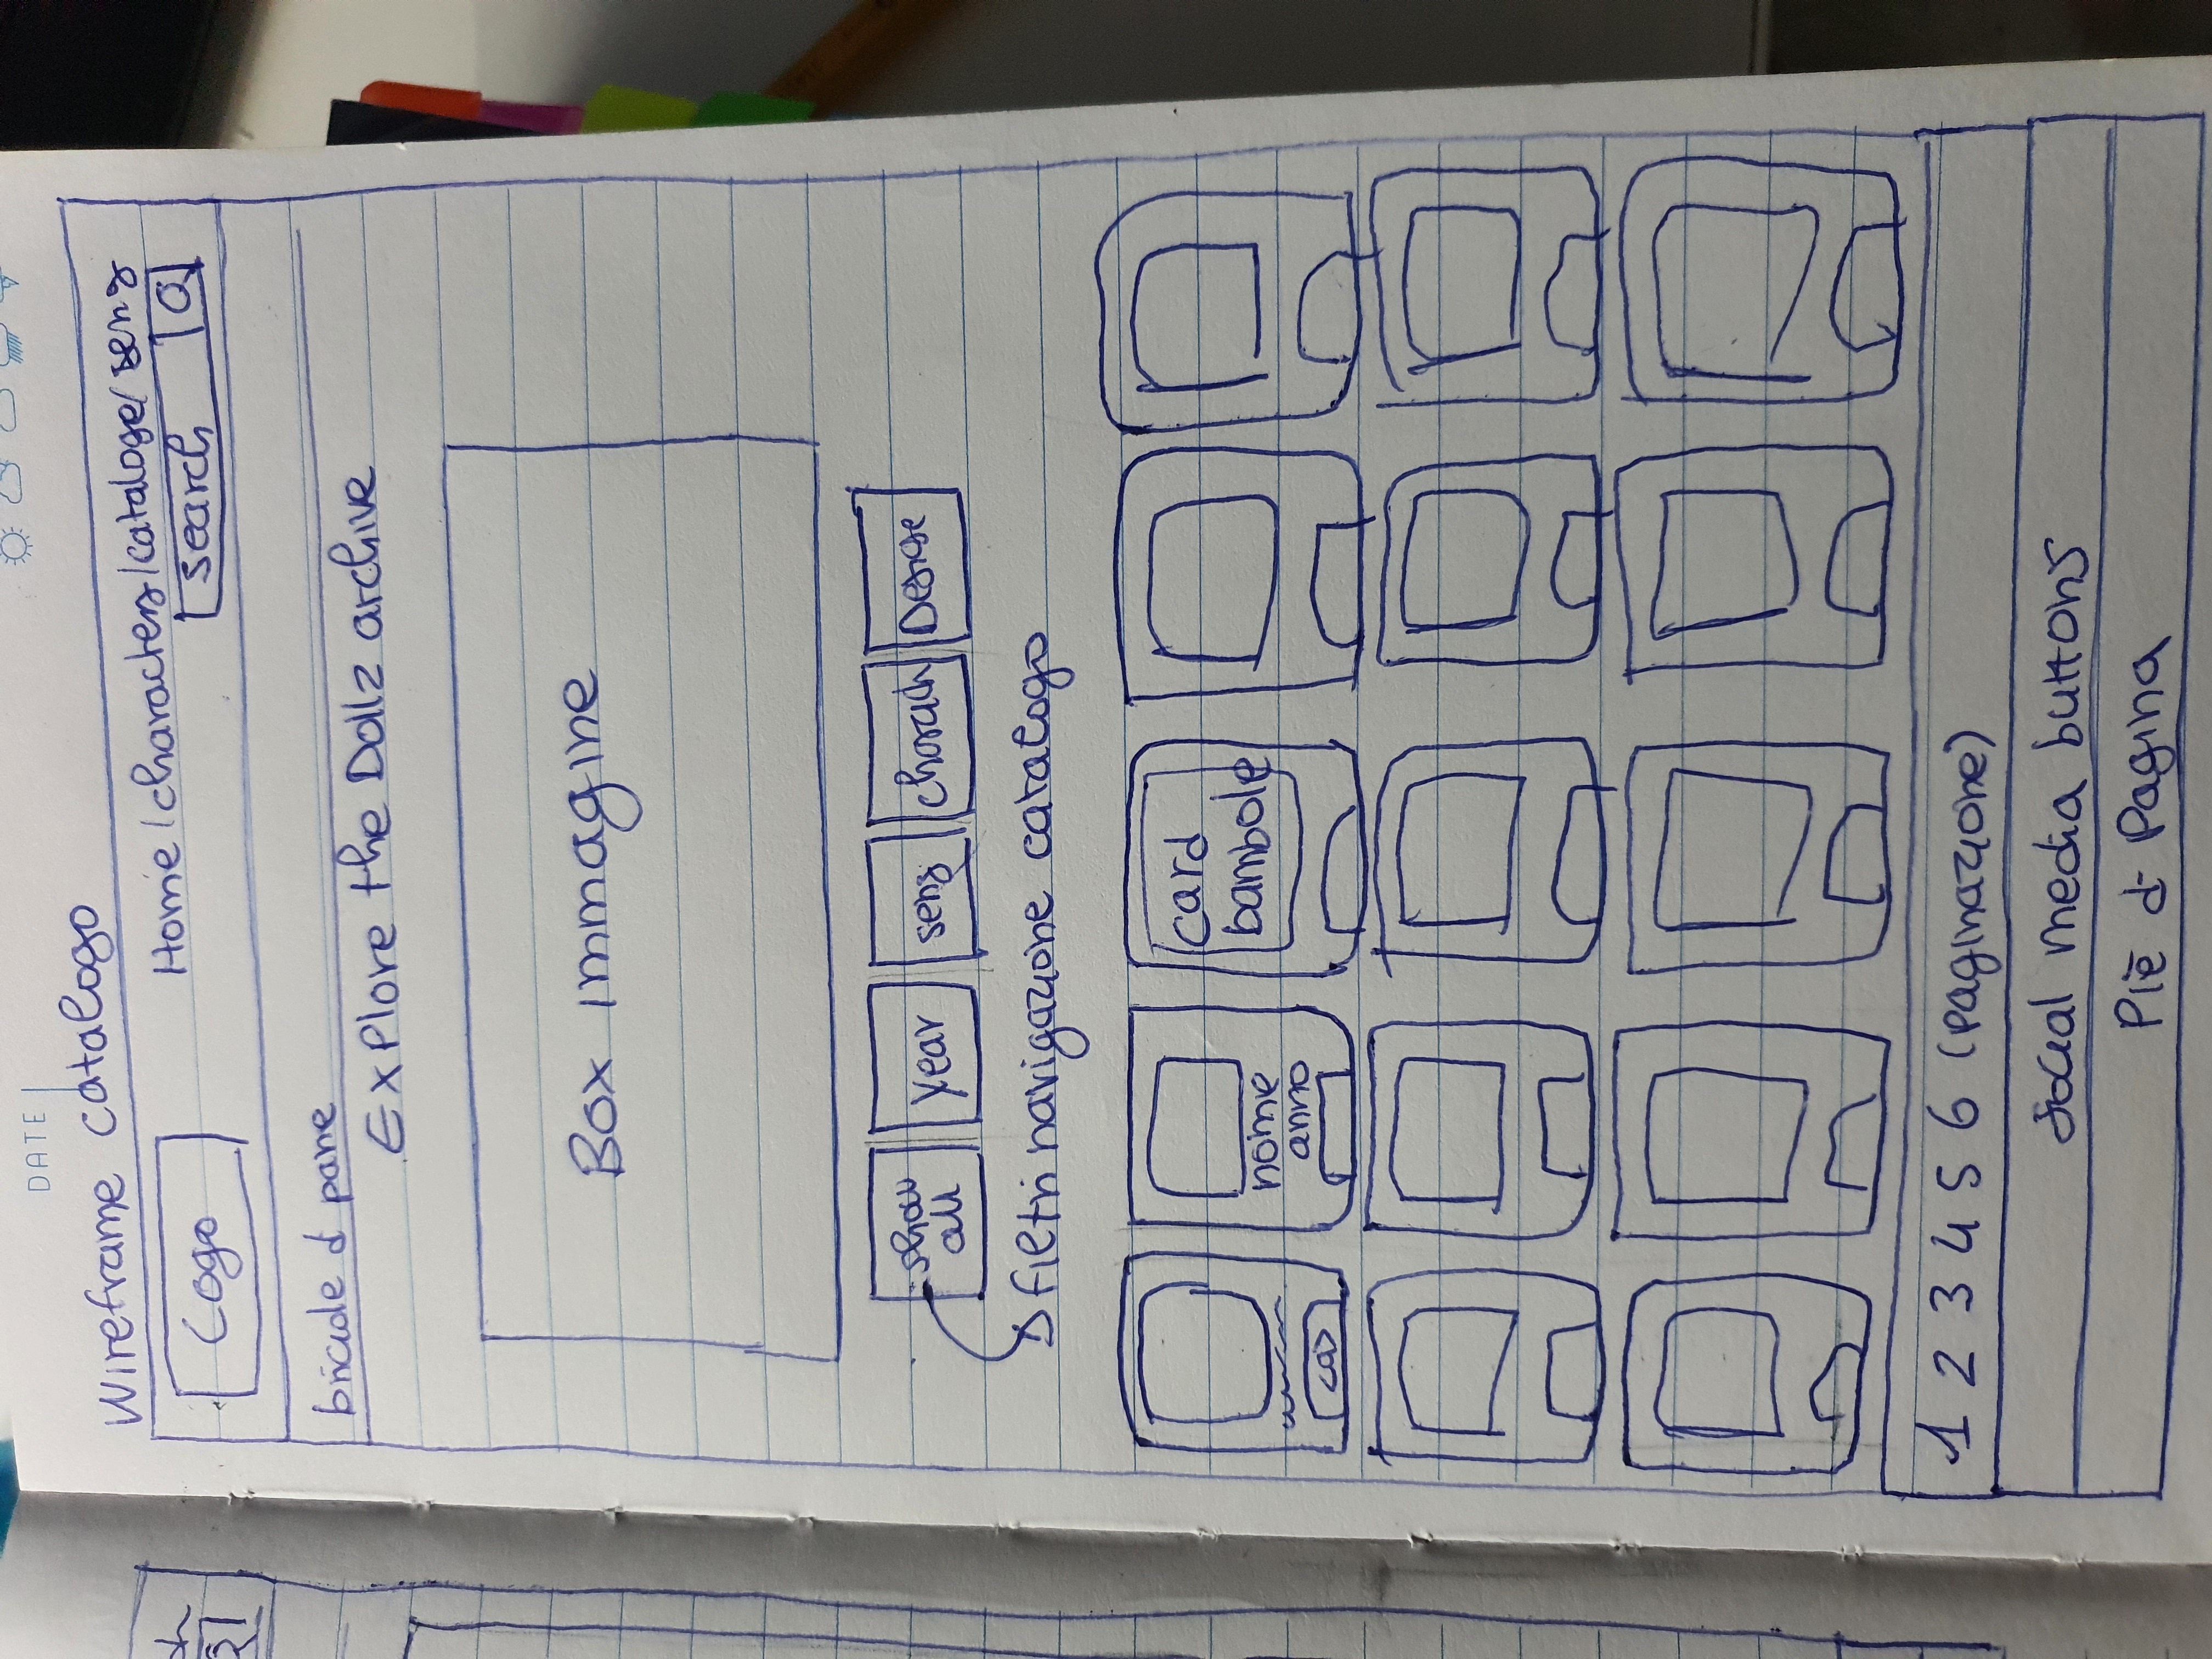 DATE
Wireframe catalogo
Logo
Home / characters / cataloge /
search
briciole d pane
Explore the Dollz archive
Box immagine
show all
year
filtri navigazione catalogo
nome
anno
<a>
card
bambole
1 2 3 4 5 6 (paginazione)
social media buttons
Piè d Pagina